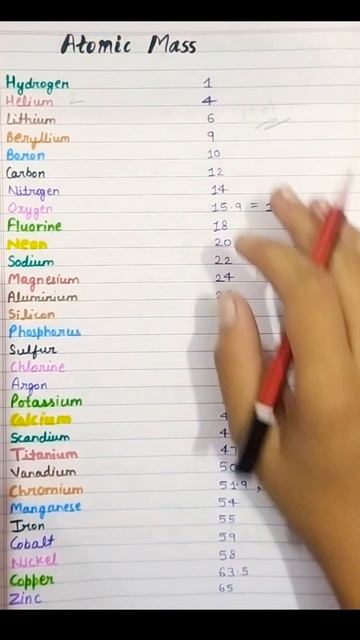 Atomic Mass
Hydrogen 1
Helium 2 4
Lithium 6
Beryllium 9
Boron 10
Carbon 12
Nitrogen 14
Oxygen 15.9 = 1
Fluorine 18
Neon 20
Sodium 22
Magnesium 24
Aluminium
Silicon
Phosphorus
Sulfur
Chlorine
Argon
Potassium
Calcium 4
Scandium 4
Titanium 47
Vanadium 50
Chromium 51.9,
Manganese 54
Iron 55
Cobalt 59
Nickel 58
Copper 63.5
Zinc 65